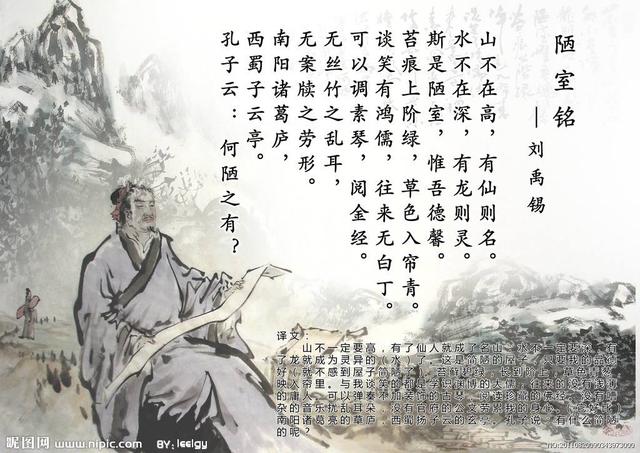 陋室铭
——刘禹锡
山不在高，有仙则名。
水不在深，有龙则灵。
斯是陋室，惟吾德馨。
苔痕上阶绿，草色入帘青。
谈笑有鸿儒，往来无白丁。
可以调素琴，阅金经。
无丝竹之乱耳，
无案牍之劳形。
南阳诸葛庐，
西蜀子云亭。
孔子云：何陋之有？
译文：
山不一定要高，有了仙人就成了名山。水不一定要深，有
了龙就成为灵异的（水）了。这是简陋的屋子，只要我的品德
好（就不感到屋子简陋了）。苔藓碧绿，长到阶上，草色青葱，
映入帘里。与我谈笑的都是学识渊博的大儒，往来的没有浅薄
的庸人。可以弹奏不加装饰的古琴，阅读珍藏的佛经。没有嘈
杂的音乐扰乱耳朵，没有官府的公文劳累我的身心。（它好比）
南阳诸葛亮的草庐，西蜀扬子云的玄亭。孔子说：有什么简陋
的呢？
昵图网 www.nipic.com BY: leelgy